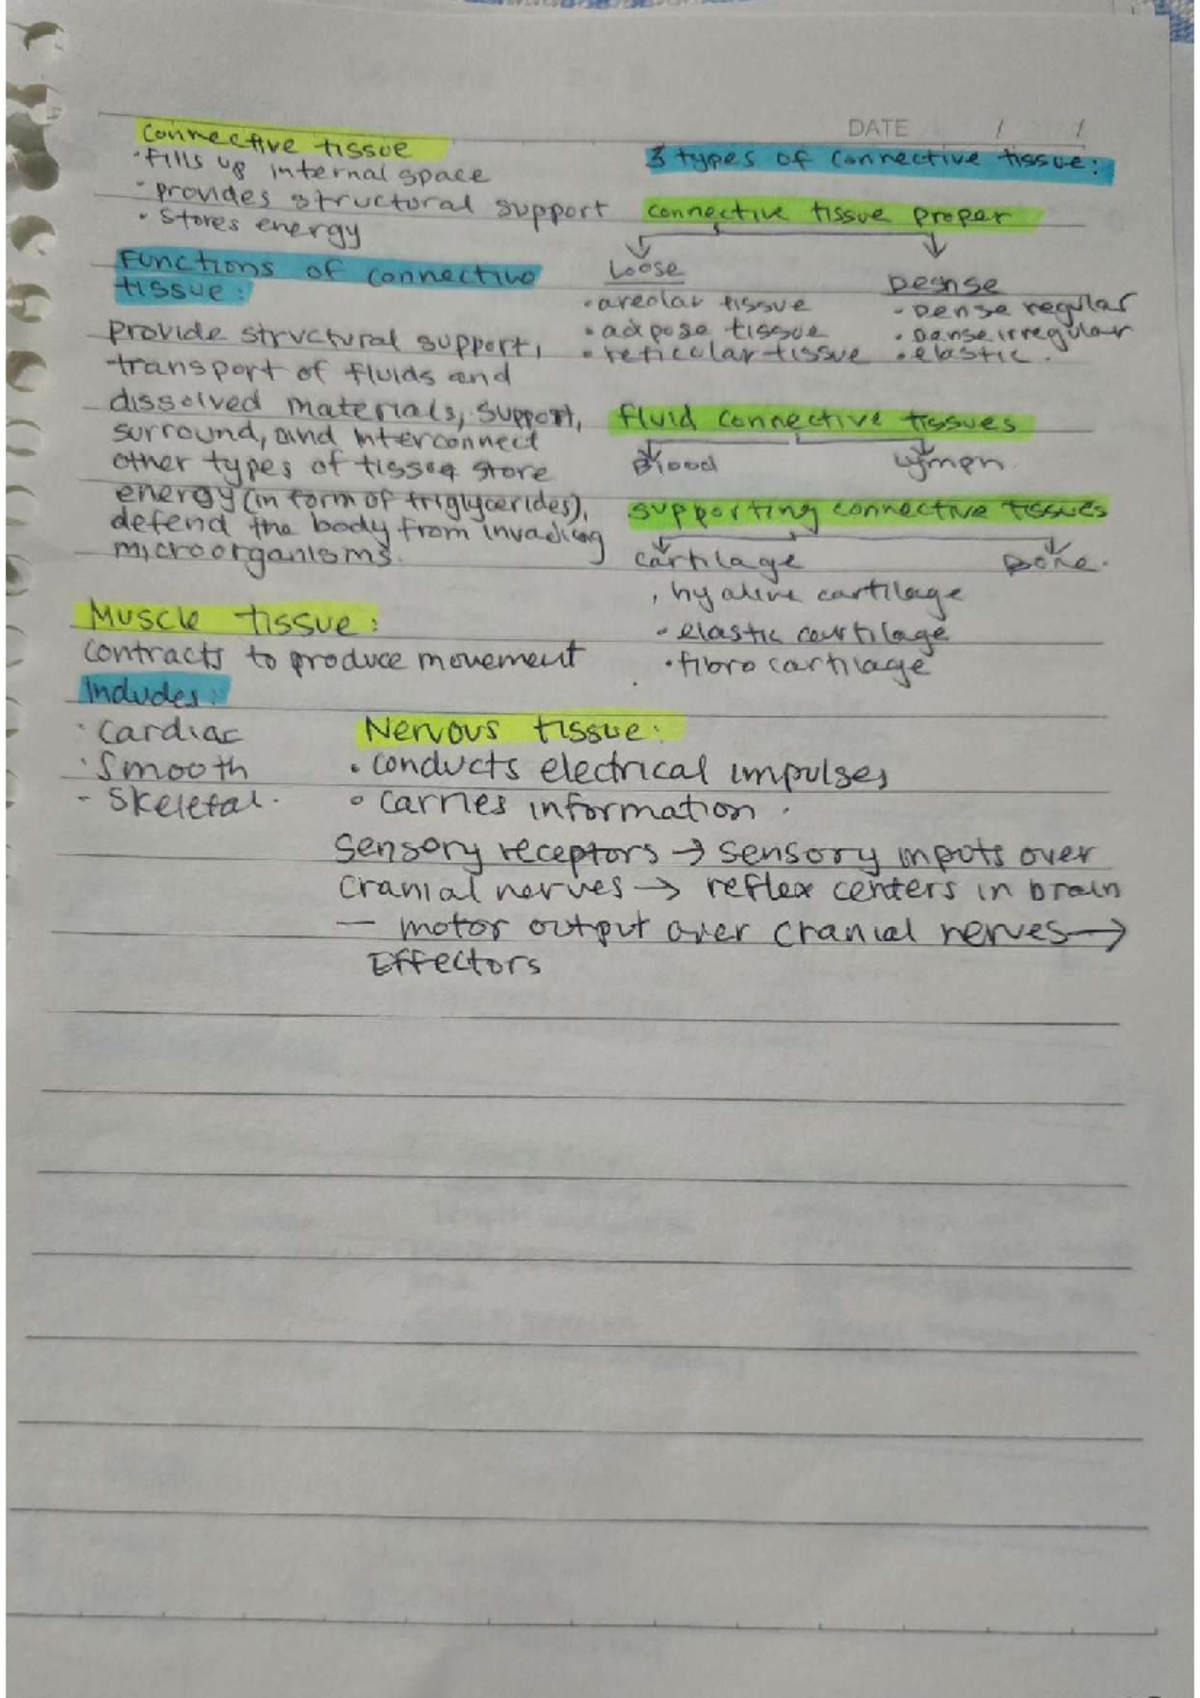 DATE / /
Connective tissue
· fills up internal space
· provides structural support
· stores energy
Functions of connective
tissue:
provide structural support,
transport of fluids and
dissolved materials, support,
surround, and interconnect
other types of tissue store
energy (in form of triglycerides),
defend the body from invading
microorganisms.
3 types of connective tissue:
connective tissue proper
Loose
· areolar tissue
· adipose tissue
· reticular tissue
Desnse
· Dense regular
· Dense irregular
· elastic.
fluid connective tissues
Blood
Lymph
supporting connective tissues
cartilage
Bone.
, hyaline cartilage
· elastic cartilage
· fibro cartilage
Muscle tissue:
contracts to produce movement
Includes:
· Cardiac
· Smooth
- Skeletal.
Nervous tissue:
· conducts electrical impulses
· carries information.
Sensory receptors → sensory inputs over
cranial nerves → reflex centers in brain
— motor output over cranial nerves →
Effectors